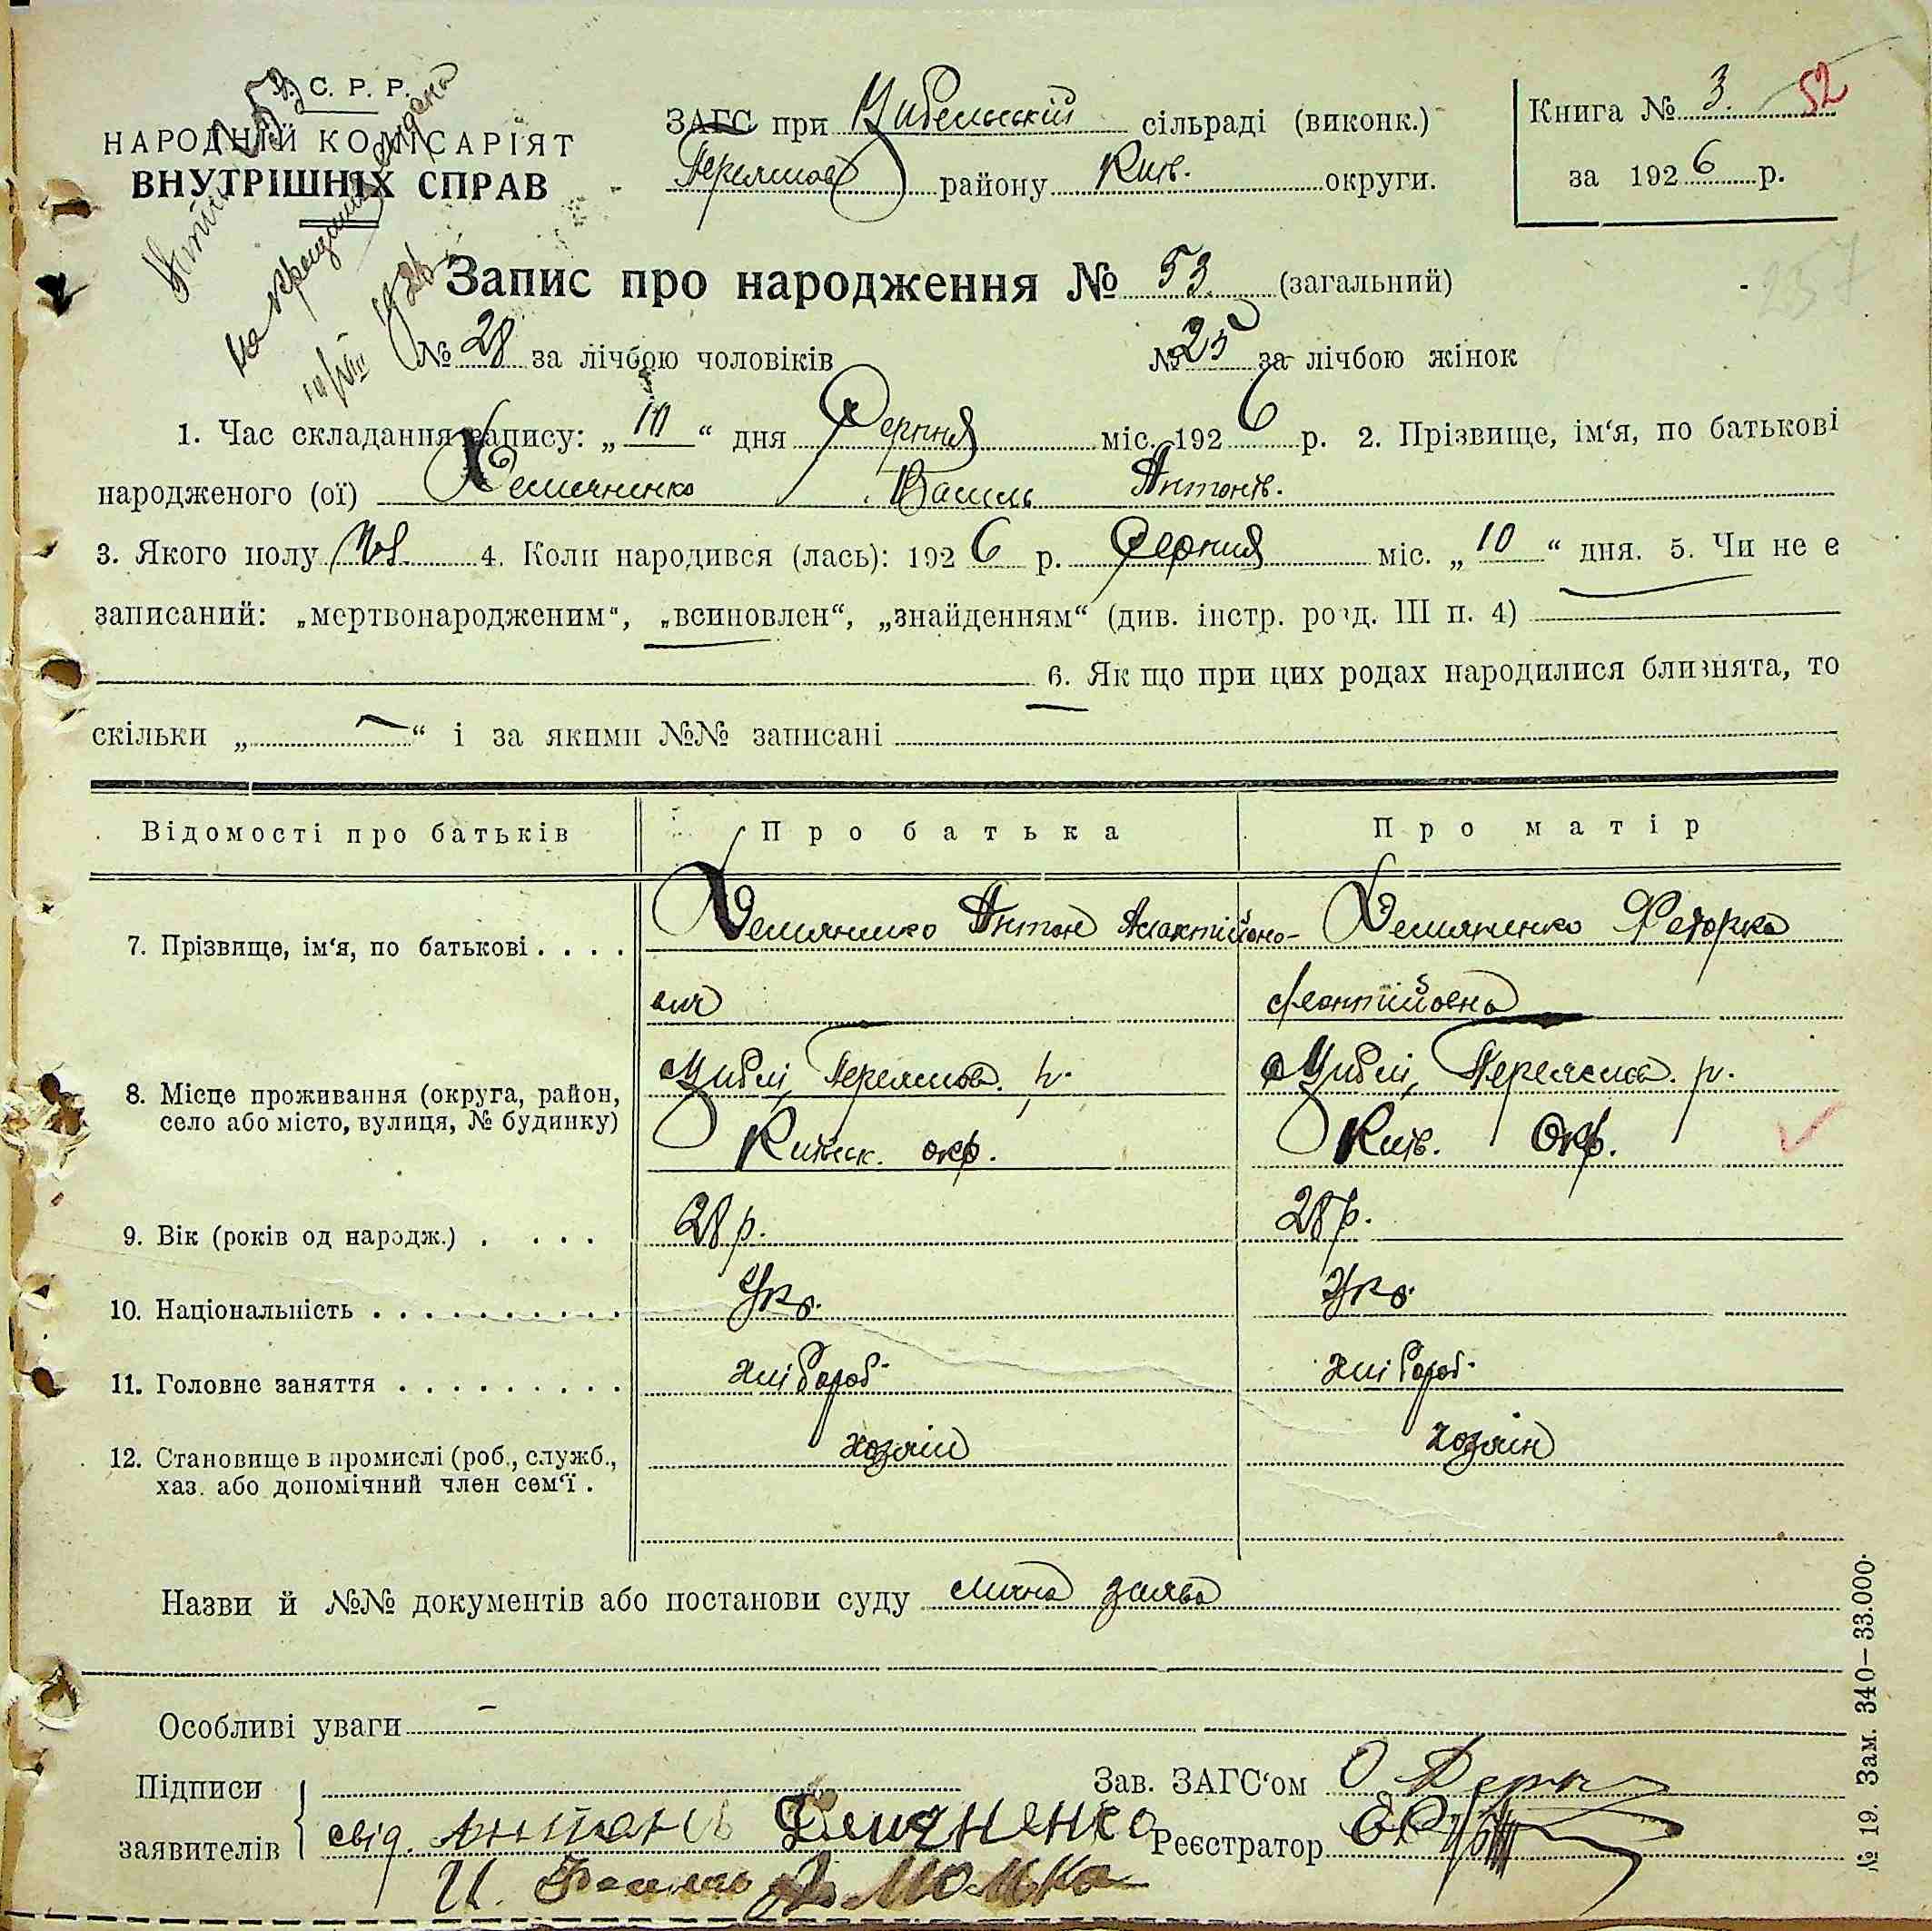 У. С. Р. Р.
НАРОДНІЙ КОМІСАРІЯТ
ВНУТРІШНІХ СПРАВ
ЗАГС при Цибельській сільраді (виконк.)
Переяслов району Київ. округи.
Книга № 3. 52
за 1926 р.
257
Запис про народження № 53 (загальний)
№ 28 за лічбою чоловіків № 25 за лічбою жінок
1. Час складання запису: „10“ дня Серпня міс. 1926 р. 2. Прізвище, ім‘я, по батькові
народженого (ої) Демяненко Василь Антонів.
3. Якого полу 4. Коли народився (лась): 1926 р. Серпня міс. „10“ дня. 5. Чи не є
записаний: „мертвонародженим“, „всиновлен“, „знайденням“ (див. інстр. розд. III п. 4)
6. Як що при цих родах народилися близнята, то
скільки „ — “ і за якими №№ записані
Відомості про батьків Про батька Про матір
7. Прізвище, ім‘я, по батькові . . . . Демяненко Антон Демяненко
вич Леонтійовна
8. Місце проживання (округа, район, село або місто, вулиця, № будинку) Циблі, Переяслов. р. Циблі, Переяслов. р.
Київськ. окр. Київ. Окр.
9. Вік (років од народж.) . . . . 28 р. 28 р.
10. Національність . . . . . . . . . . Укр. Укр.
11. Головне заняття . . . . . . . . . хлібороб хлібороб
12. Становище в промислі (роб., служб., хаз. або допомічний член сем‘ї . хозяін хозяін
Назви й №№ документів або постанови суду лична заява
Особливі уваги —
Підписи заявителів Зав. ЗАГС‘ом
свід. Антонъ Демяненко Реєстратор
№ 19. Зам. 340—33.000.